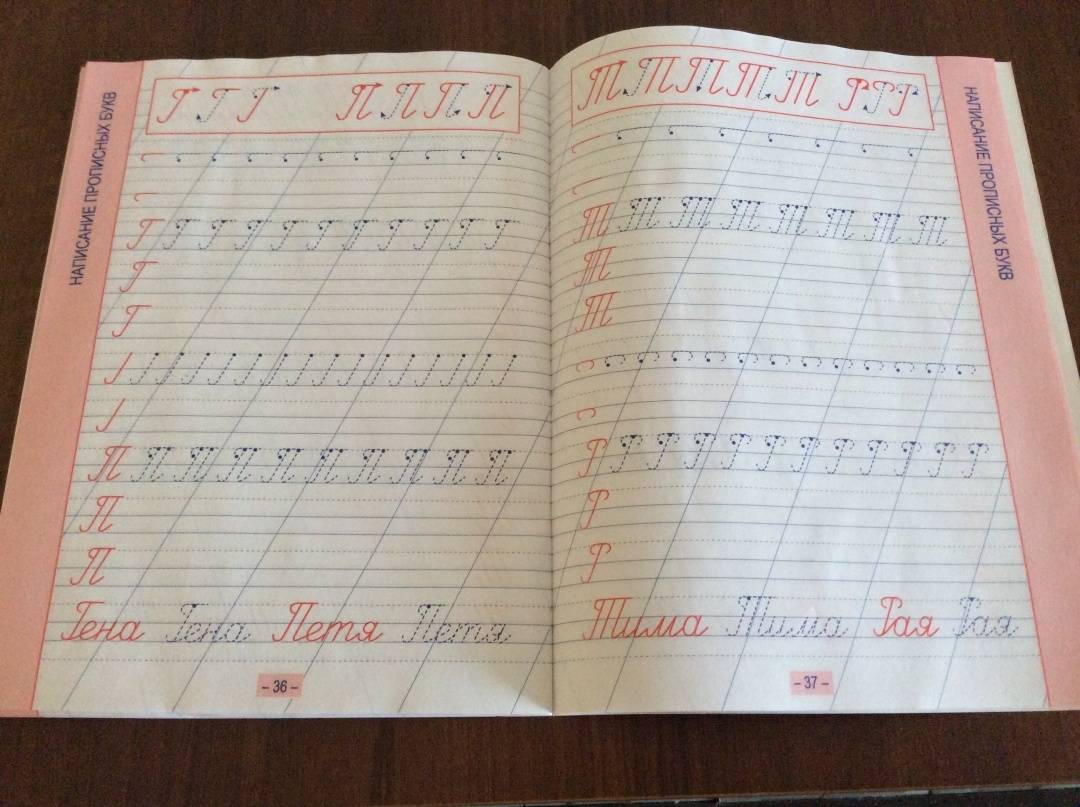 НАПИСАНИЕ ПРОПИСНЫХ БУКВ
Г Г Г П П П П
Г Г Г Г Г Г Г Г Г Г
Г
Г
П П П П П П П П П П
П
П
Гена Гена Петя Петя
– 36 –
НАПИСАНИЕ ПРОПИСНЫХ БУКВ
Т Т Т Т Т Р Р Р
Т Т Т Т Т Т Т Т
Т
Т
Р Р Р Р Р Р Р Р Р Р Р
Р
Р
Тима Тима Рая Рая
– 37 –